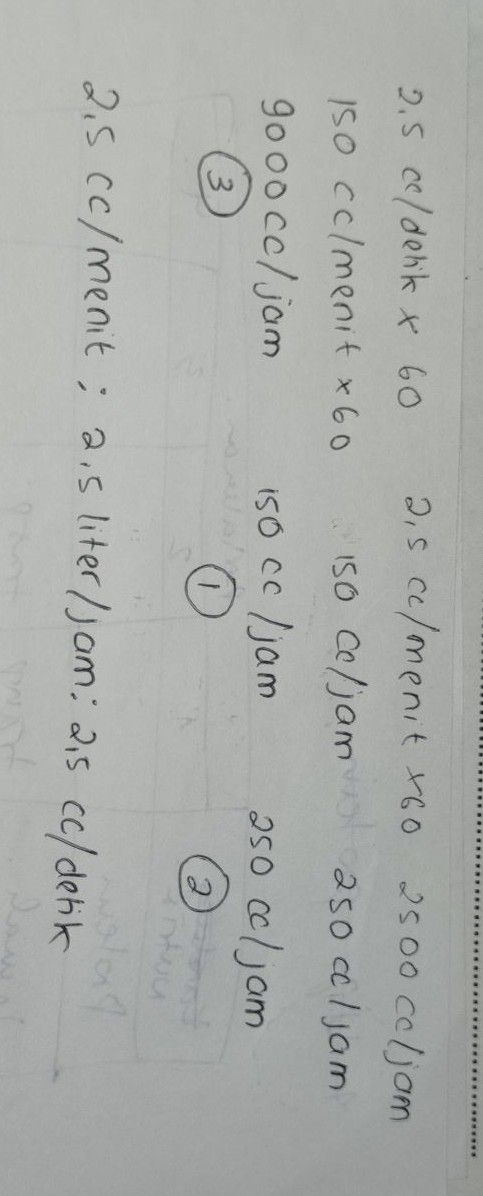 2,5 cc/detik x 60 2,5 cc/menit x60 2500 cc/jam
150 cc/menit x60 150 cc/jam 250 cc/jam
9000 cc/jam 150 cc/jam 250 cc/jam
3 1 2
2,5 cc/menit ; 2,5 liter/jam ; 2,5 cc/detik